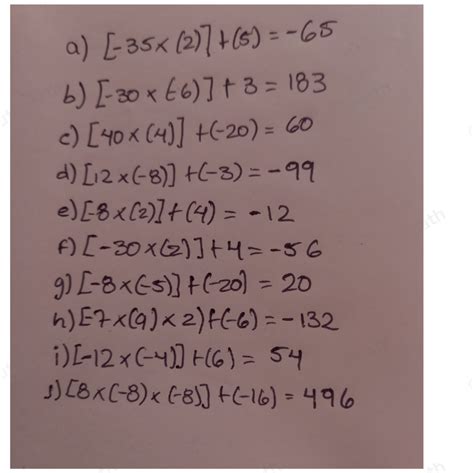 a) [-35x(2)]+(5)=-65
b) [-30 x (-6)] + 3 = 183
c) [40 x (4)] +(-20) = 60
d) [12 x(-8)] +(-3) = -99
e) [-8 x(2)]+(4) = -12
f) [-30x(2)]+4=-56
g) [-8x(-5)] +(-20) = 20
h) [-7x(9)x2)+(-6)=-132
i) [-12x(-4)] +(6) = 54
j) [8x(-8)x(-8)] +(-16) = 496